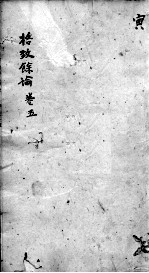 寅
格致餘論 卷五